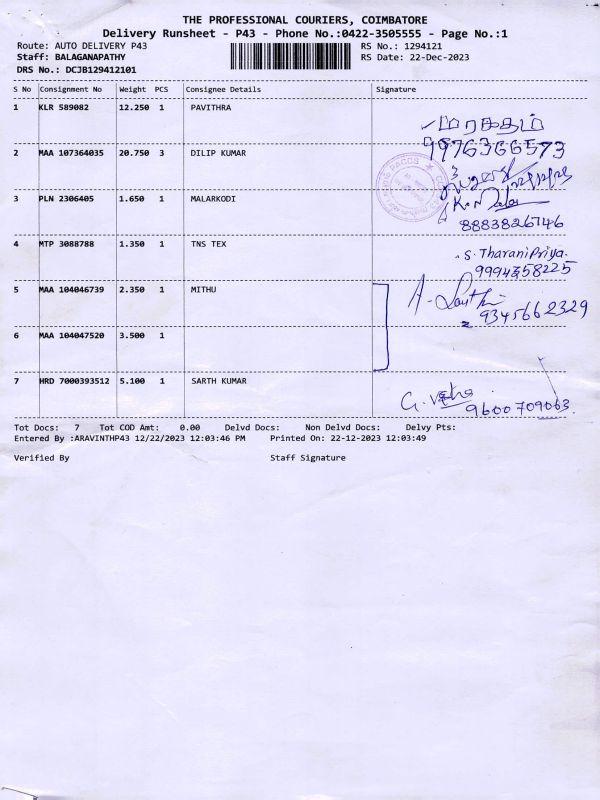 THE PROFESSIONAL COURIERS, COIMBATORE
Delivery Runsheet - P43 - Phone No.:0422-3505555 - Page No.:1
Route: AUTO DELIVERY P43 RS No.: 1294121
Staff: BALAGANAPATHY RS Date: 22-Dec-2023
DRS No.: DCJB129412101
S No Consignment No Weight PCS Consignee Details Signature
1 KLR 589082 12.250 1 PAVITHRA
மரகதம்
9976366573
2 MAA 107364035 20.750 3 DILIP KUMAR
3
PACCS
3 PLN 2306405 1.650 1 MALARKODI
8883826746
4 MTP 3088788 1.350 1 TNS TEX
S. TharaniPriya.
9994358225
5 MAA 104046739 2.350 1 MITHU
9345662329
6 MAA 104047520 3.500 1
7 HRD 7000393512 5.100 1 SARTH KUMAR
9600709063
Tot Docs: 7 Tot COD Amt: 0.00 Delvd Docs: Non Delvd Docs: Delvy Pts:
Entered By :ARAVINTHP43 12/22/2023 12:03:46 PM Printed On: 22-12-2023 12:03:49
Verified By Staff Signature